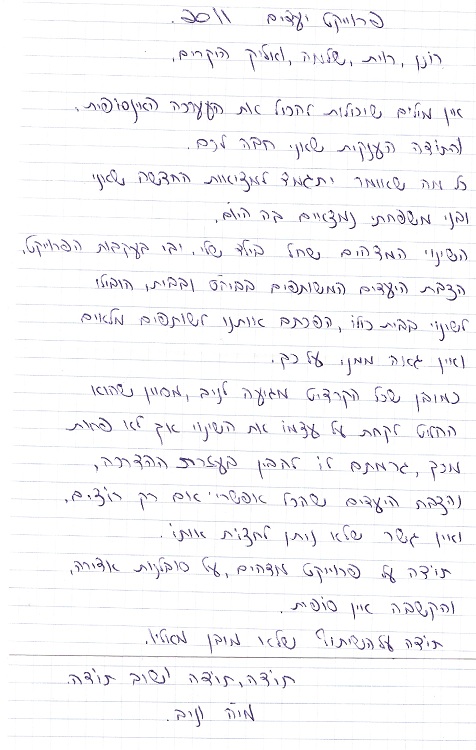 פרוייקט יעדים 2011.
רונן, רוית, שלומה, ואליק היקרים,
אין מילים שיכולות להכיל את ההערכה האינסופית,
והתודה הענקית שאני חבה לכם.
כל מה שאומר יתגמד למציאות החדשה שאני
ובני משפחתי נמצאים בה היום,
השינוי המדהים שחל בילד שלי, יבי בעקבות הפרוייקט,
הצבת היעדים המשותפים בביה"ס ובבית, הובילו
לשינוי בבית כולו, הפכתם אותנו לשותפים מלאים
ואין גאה ממני על כך.
כמובן שכל הקרדיט מגיעה לניב, מכיוון שהוא
החליט לקחת על עצמו את השינוי אך לא פחות
מכך, גרמתם לו להבין בעזרת ההדרכה,
והצבת היעדים שהכל אפשרי אם רק רוצים,
ואין גשר שלא ניתן לחצות אותו.
תודה על פרוייקט מדהים, על סובלנות אדירה,
והקשבה אין סופית.
תודה על השיתו"פ שלא מובן מאליו.
תודה, תודה ושוב תודה.
מיה וניב.